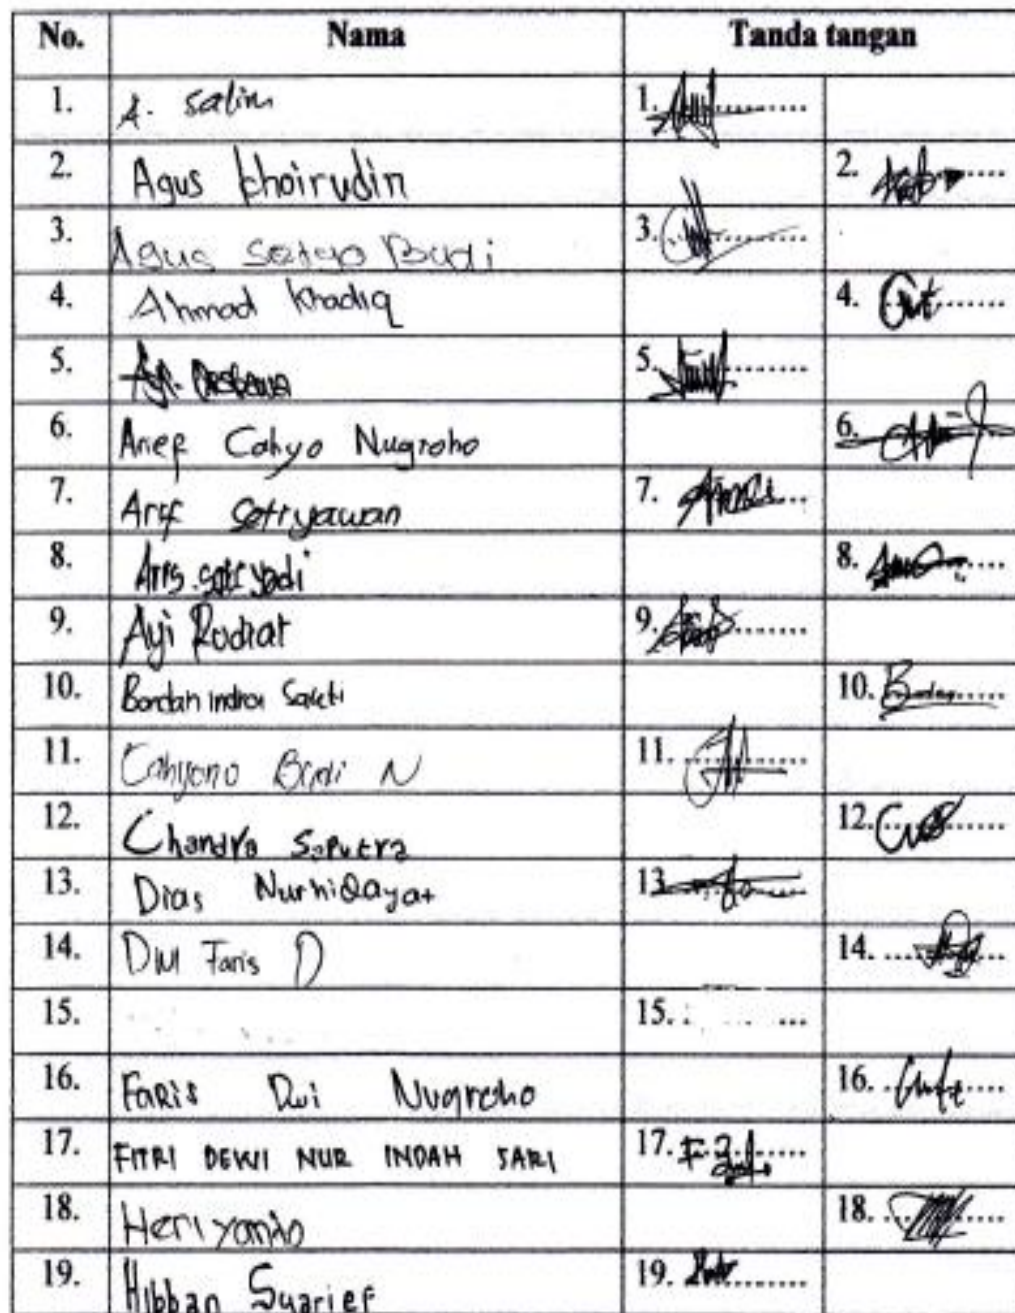 No. Nama Tanda tangan
1. A. Salim 1.
2. Agus Khoirudin 2.
3. Agus Setyo Budi 3.
4. Ahmad Khadiq 4.
5. 5.
6. Arief Cahyo Nugroho 6.
7. Arif Setiyawan 7.
8. Aris Setiyadi 8.
9. Ayi Rudiat 9.
10. Bondan Indra Sakti 10.
11. Cahyono Budi N 11.
12. Chandra Saputra 12.
13. Dias Nurhidayat 13
14. Dwi Faris D 14.
15. 15.
16. Faris Dwi Nugroho 16.
17. FITRI DEWI NUR INDAH SARI 17.
18. Heriyanto 18.
19. Hibban Syarief 19.